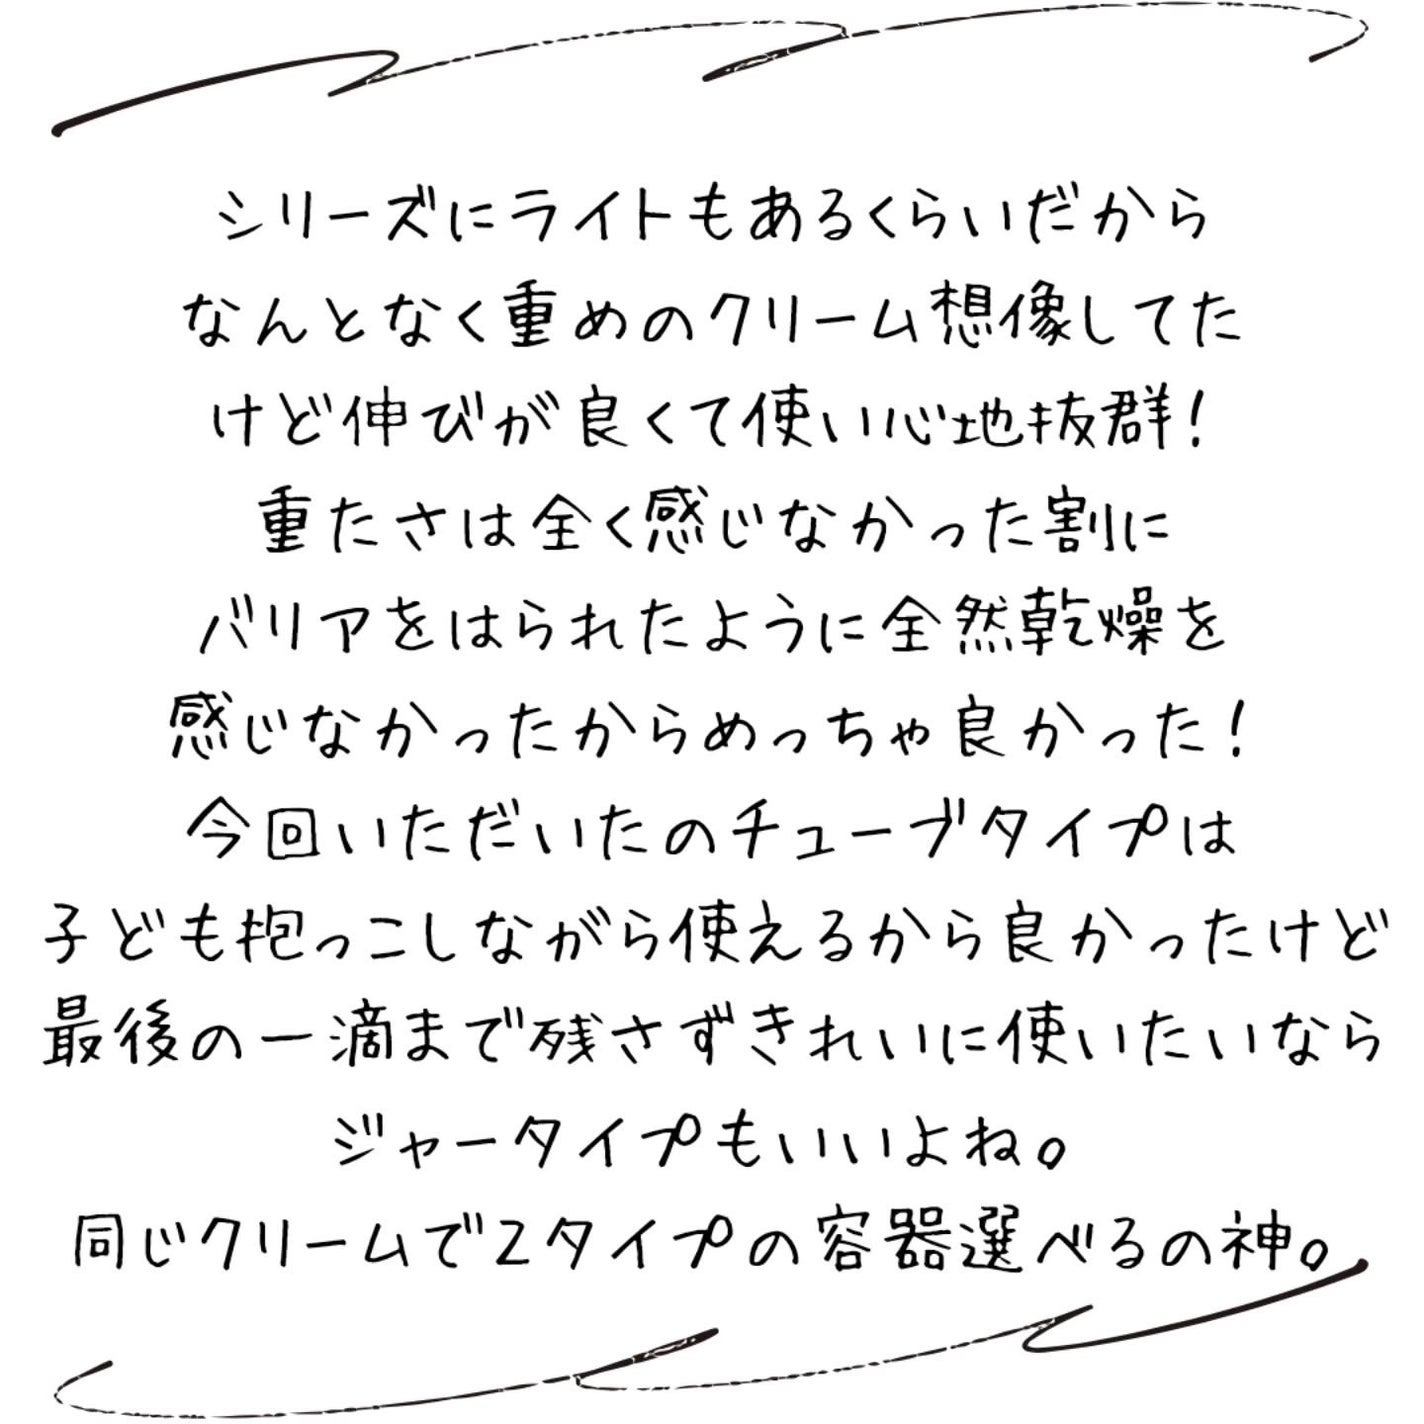 シリーズにライトもあるくらいだから
なんとなく重めのクリーム想像してた
けど伸びが良くて使い心地抜群！
重たさは全く感じなかった割に
バリアをはられたように全然乾燥を
感じなかったからめっちゃ良かった！
今回いただいたのチューブタイプは
子ども抱っこしながら使えるから良かったけど
最後の一滴まで残さずきれいに使いたいなら
ジャータイプもいいよね。
同じクリームで2タイプの容器選べるの神。